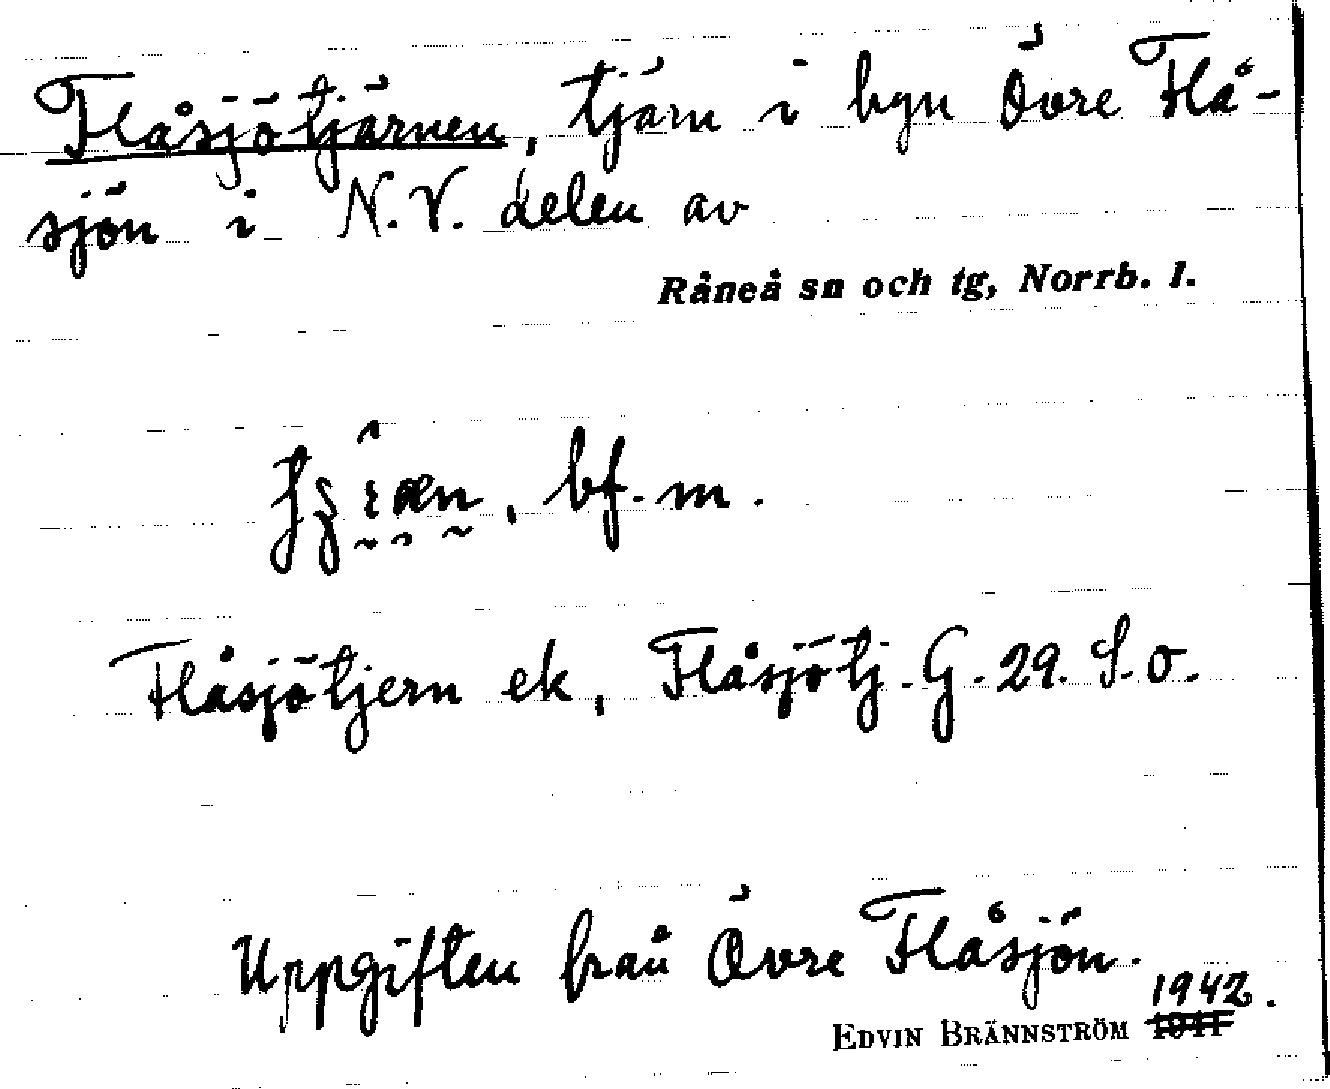 Flåsjötjärnen, tjärn i byn Övre Flå-
sjön i N.V. delen av
Råneå sn och tg, Norrb. l.
bf. m.
Flåsjötjern ek, Flåsjötj. G. 29. S.O.
Uppgiften från Övre Flåsjön.
1942.
EDVIN BRÄNNSTRÖM 1941